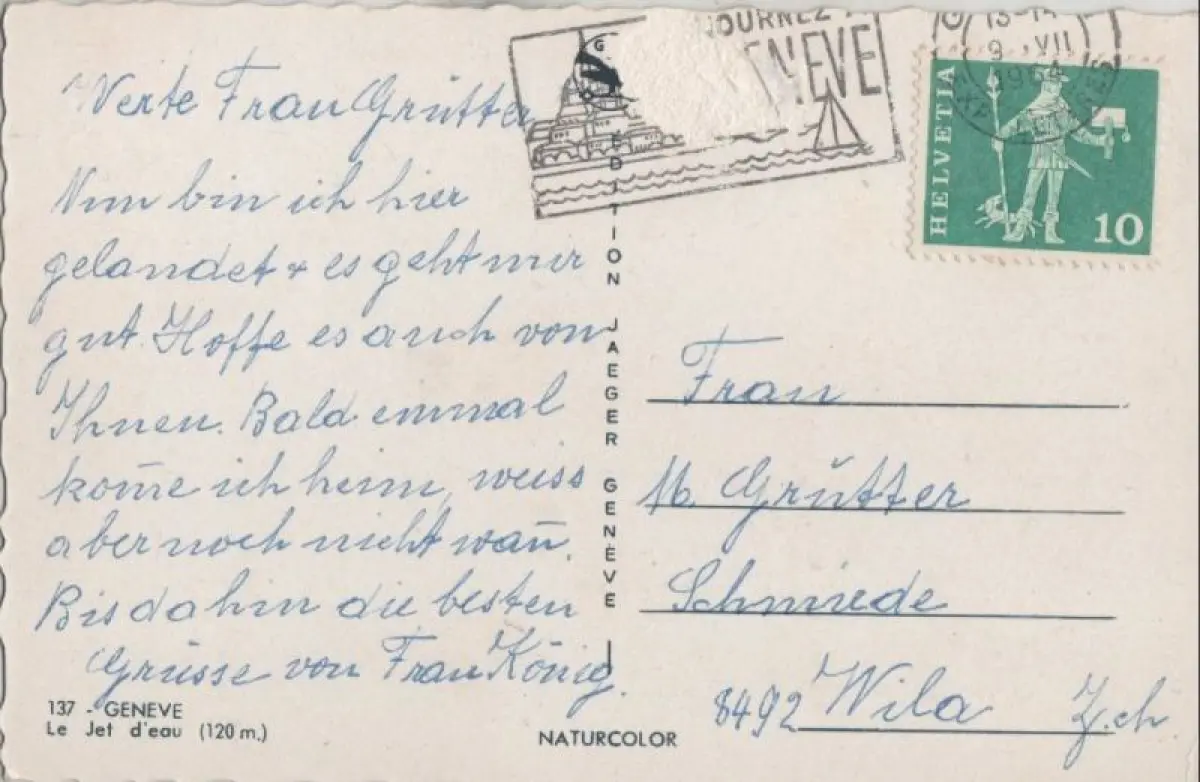 Werte Frau Grütter
Nun bin ich hier
gelandet + es geht mir
gut. Hoffe es auch von
Ihnen. Bald einmal
kom̄e ich heim, weiss
aber noch nicht wan̄.
Bis dahin die besten
Grüsse von Frau König.
137 - GENEVE
Le Jet d'eau (120 m.)
EDITION JAEGER GENÈVE
NATURCOLOR
GENEVE
13-14
9. VII
1964
HELVETIA
10
Frau
M. Grütter
Schmiede
8492 Wila Z.ch